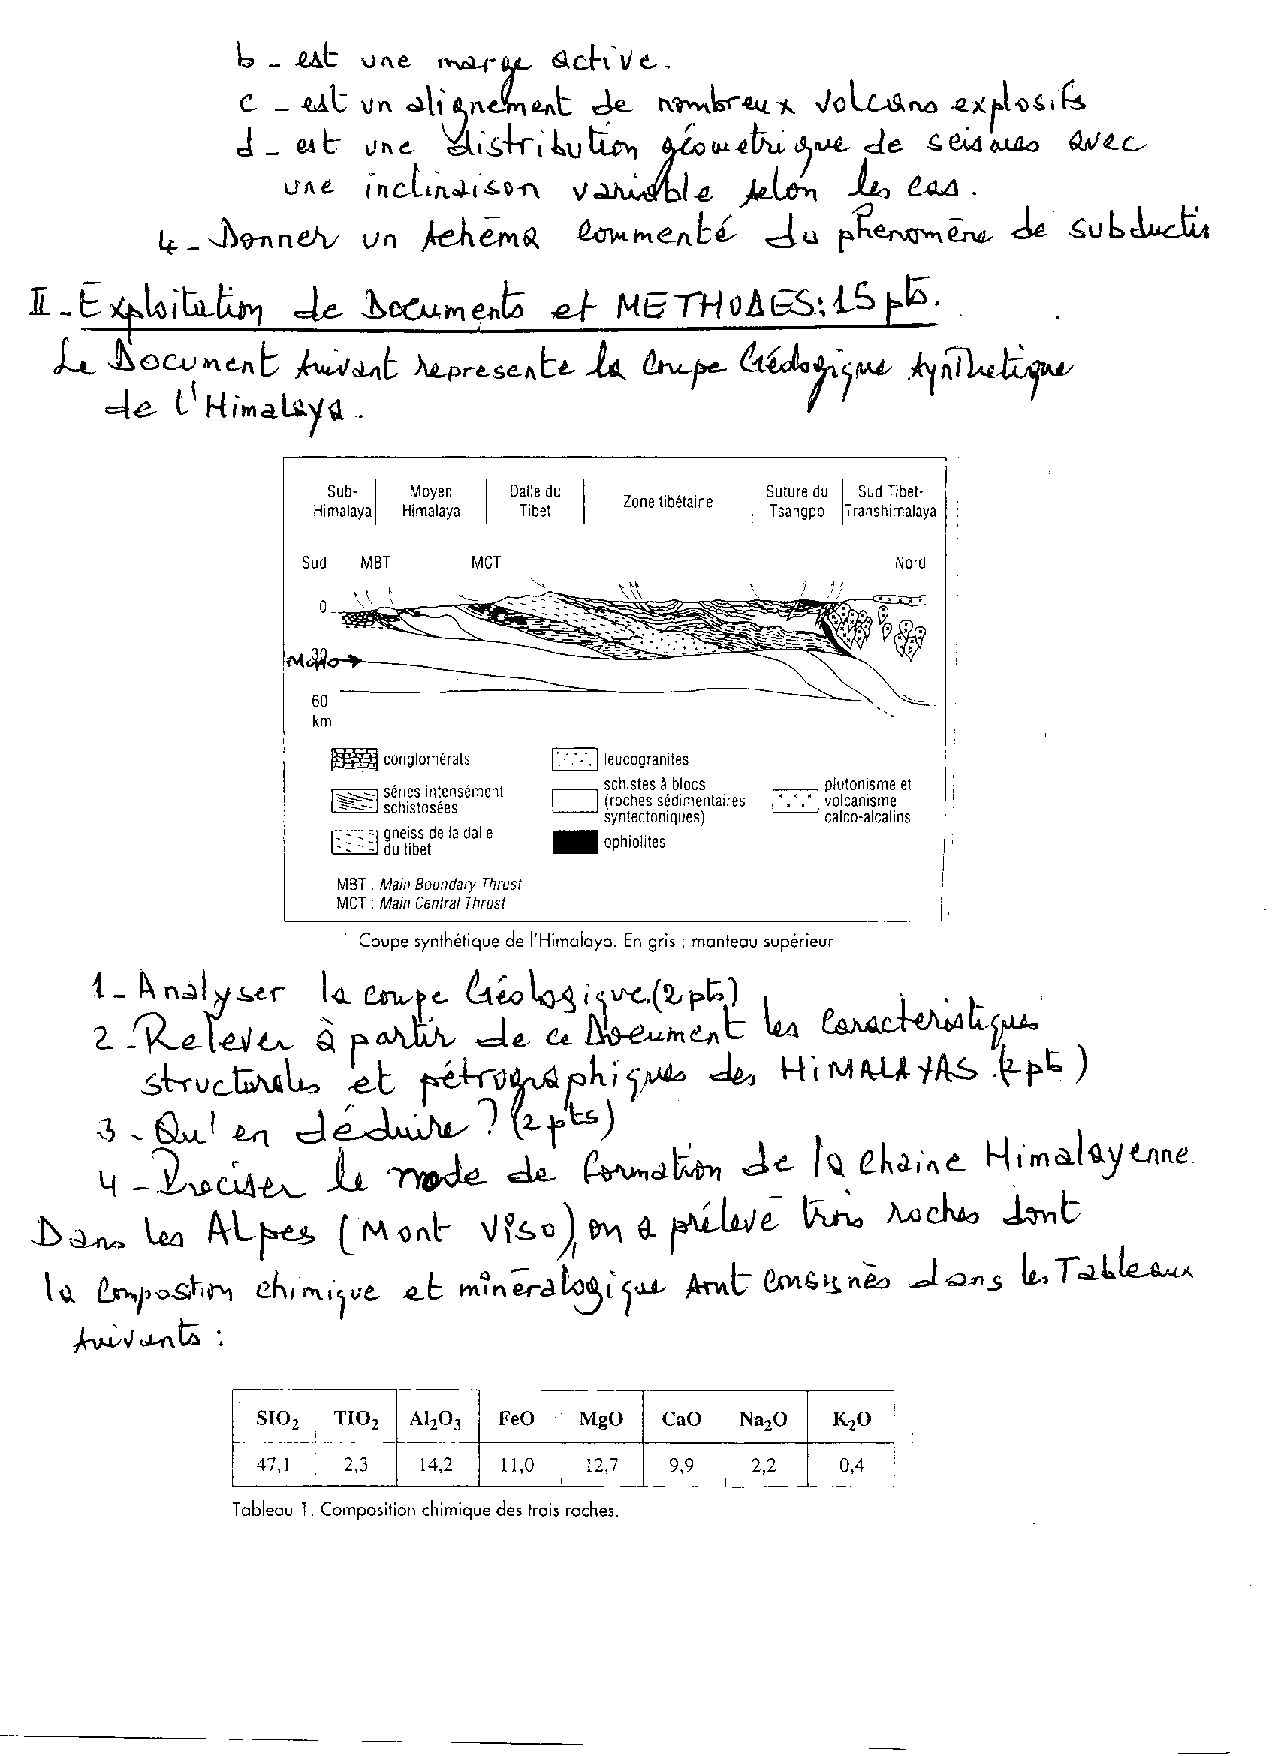 b - est une marge active.
c - est un alignement de nombreux volcans explosifs
d - est une distribution géometrique de seismes avec
une inclinaison variable selon les cas.
4 - Donner un schéma commenté du phénomène de subductio
II - Exploitation de Documents et METHODES : 15 pts.
Le Document suivant represente la Coupe Géologique synthetique
de l'Himalaya.
Sub-Himalaya Moyen Himalaya Dalle du Tibet Zone tibétaine Suture du Tsangpo Sud Tibet-Transhimalaya
Sud MBT MCT Nord
0
Moho
60
km
conglomérats leucogranites
séries intensément schistosées schistes à blocs (roches sédimentaires syntectoniques) plutonisme et volcanisme calco-alcalins
gneiss de la dalle du tibet ophiolites
MBT : Main Boundary Thrust
MCT : Main Central Thrust
Coupe synthétique de l'Himalaya. En gris : manteau supérieur
1 - Analyser la coupe Géologique. (2 pts)
2 - Relever à partir de ce Document les caractéristiques
structurales et pétrographiques des HIMALAYAS. (2 pts)
3 - Qu'en déduire ? (2 pts)
4 - Préciser le mode de formation de la chaine Himalayenne.
Dans les Alpes (Mont Viso), on a prélevé trois roches dont
la composition chimique et minéralogique sont consignés dans les Tableaux
suivants :
SIO2 TIO2 Al2O3 FeO MgO CaO Na2O K2O
47,1 2,3 14,2 11,0 12,7 9,9 2,2 0,4
Tableau 1. Composition chimique des trois roches.